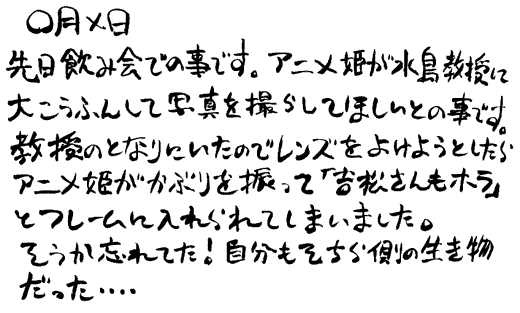 〇月×日
先日飲み会での事です。アニメ姫が水島教授に
大こうふんして写真を撮らしてほしいとの事です。
教授のとなりにいたのでレンズをよけようとしたら
アニメ姫がかぶりを振って「吉松さんもホラ」
とフレームに入れられてしまいました。
そうか忘れてた!自分もそちら側の生き物
だった‥‥